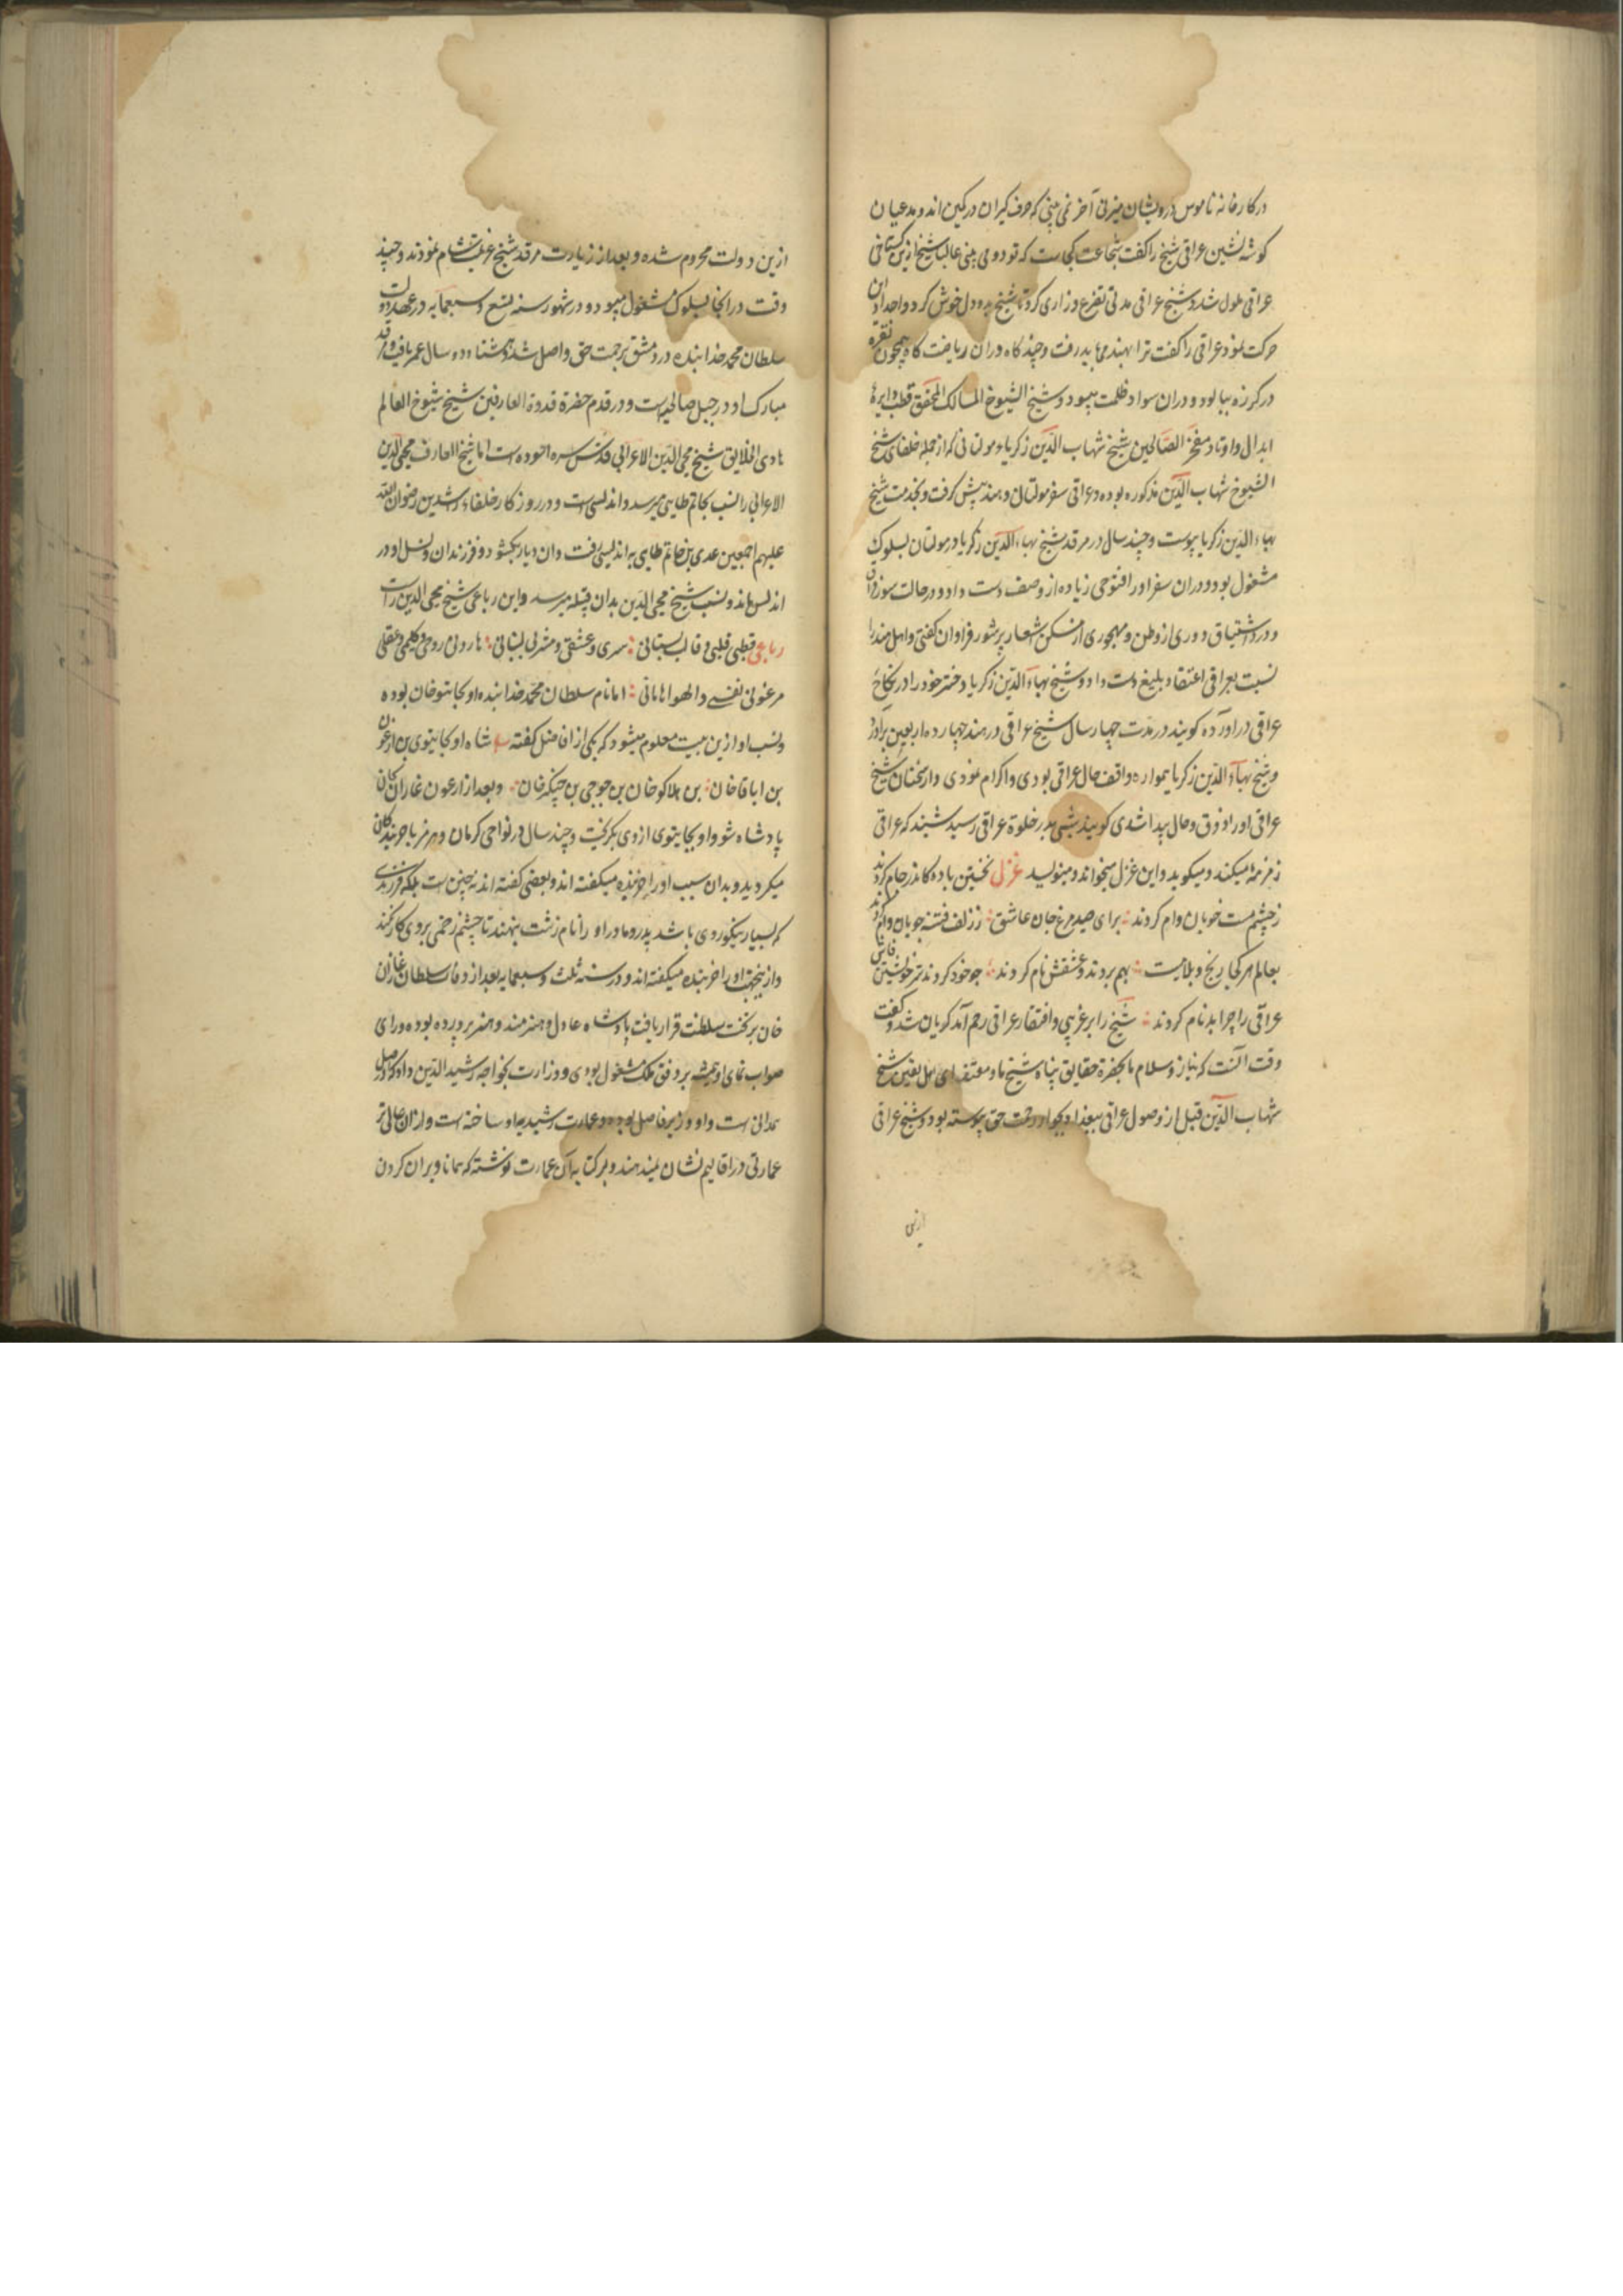 در کارخانه ناموس درویشان میزنی آخر نمی بینی که حرف گیران در کمین اند و مدعیان
گوشه نشین عراقی شیخ را گفت شجاعت کجاست که تو دوی بینی غالبا شیخ ازین گستاخی
عراقی ملول شد و شیخ عراقی مدتی تضرع و زاری کرد تا شیخ بدو دل خوش کرد و اجد از ان
حرکت نمود عراقی را گفت ترا بهند می باید رفت و چند گاه در ان ریاضت گاه همچون نقره
در کرزه بپالود و دران سواد ظلمت پیمود و شیخ الشیوخ السالک المحقق قطب دایرهٔ
ابدال و اوتاد مفخر الصالحین شیخ شهاب الدین زکریاء مولتانی که از جمله خلفای شیخ
الشیوخ شهاب الدین مذکوره بوده و عراقی سفر مولتان و هند پیش گرفت و بخدمت شیخ
بهاء الدین زکریا پیوست و چند سال در مرقد شیخ بهاء الدین زکریا در مولتان بسلوک
مشغول بود و دران سفر او را فتوحی زیاده از وصف دست داد و در حالت سوزان
و درد اشتیاق و دوری از وطن و مهجوری از مسکن شعار پرشور فراوان گفتی و اهل هند را
نسبت بعراقی اعتقاد بلیغ دست داد و شیخ بهاء الدین زکریا دختر خود را در نکاح
عراقی دراورده گویند در مدت چهار سال شیخ عراقی در هند چهارده اربعین براورد
و شیخ بهاء الدین زکریا همواره واقف حال عراقی بودی و اکرام نمودی و از سخنان شیخ
عراقی او را ذوق و حال پیدا شدی گویند شبی بدر خلوة عراقی رسید شنید که عراقی
زمزمهٔ میکند و میگوید و این غزل میخواند و مینوسید غزل نخستین باده کاندر جام کردند
ز چشم مست خوبان وام کردند برای صید مرغ جان عاشق ز زلف فتنه جویان دام کردند
بعالم هر کجا رنج و بلاییست بهم بردند و عشقش نام کردند چو خود کردند سر خویشتن فاش
عراقی را چرا بدنام کردند شیخ را بر غریبی و افتقار عراقی رحم آمد گریان شد و گفت
وقت آنست که نیاز و سلام ما بحضرة حقایق پناه شیخ ما و مقتدای اهل یقین شیخ
شهاب الدین قبل از وصول عراقی ببغداد بجوار رحمت حق پیوسته بود و شیخ عراقی
ازین
ازین دولت محروم شده و بعد از زیارت مرقد شیخ عزیمت شام نمودند و چند
وقت در انجا بسلوک مشغول میبود و در شهور سنه تسع و سبعمایه در عهد دولت
سلطان محمد خدابنده در دمشق برحمت حق واصل شد و هشتاد و دو سال عمر یافت و مرقد
مبارک او در جبل صالحیه است و در قدم حضرة قدوة العارفین شیخ شیوخ العالم
هادی الخلایق شیخ محی الدین الاعرابی قدس سره اسوده است اما شیخ العارف محی الدین
الاعرابی را نسب بحاتم طایی میرسد و اندلسی است و در روزکار خلفاء راشدین رضوان الله
علیهم اجمعین عدی بن حاتم طایی به اندلس رفت و ان دیار بکشود و فرزندان و نسل او در
اندلس ماند و نسب شیخ محی الدین بدان قبیله میرسد و این رباعی شیخ محی الدین راست
رباعی قطبی قلبی و قالب لبنانی سری و عشقی و مشربی لبنانی هارونی روحی و کلیمی و عقلی
فرعونی نفسی والهوا هامانی اما نام سلطان محمد خدابنده اولجایتو خان بوده
و نسب او ازین بیت معلوم میشود که یکی از افاضل گفته شاه اولجایتوی بن ارغون
بن اباقاخان بن هلاکو خان بن جوجی بن چنکیز خان و بعد از ارغون غازان کان
پادشاه شو و اولجایتوی از وی بگریخت و چند سال در نواحی کرمان و هرمز با خربندکان
میگردید و بدان سبب او را خربنده میگفته اند و بعضی گفته اند نه چنین است بلکه فرزندی
که بسیار نیکو روی باشد پدر و مادر او را نام زشت بنهند تا چشم زخمی بروی کار نکند
و ازینجهت او را خربنده میگفته اند و در سنه ثلث و سبعمایه بعد از وفات سلطان غازان
خان بر تخت سلطنت قرار یافت پادشاه عادل و هنرمند و هنر پرورده بوده و رای
صواب نمای او همیشه بر رونق ملک مشغول بودی و وزارت بخواجه رشید الدین داد که در اصل
همدانی است و او وزیر فاضل بوده و عمارت رشیدیه او ساخته است و ازان عالی تر
عمارتی در اقالیم نشان نمیدهند و بر کتابه آن عمارت نوشته که همانا ویران کردن